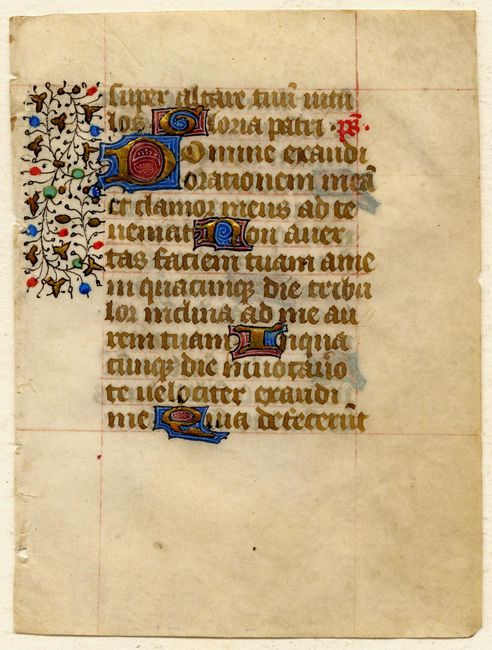 super altare tuū vitu
los Gloria patri · ps̄ ·
Domine exaudi
orationem meā
et clamor meus ad te
ueniat Non auer
tas faciem tuam a me
in quacunqꝫ die tribu
lor inclina ad me au
rem tuam In qua
cunqꝫ die inuocauero
te uelociter exaudi
me Quia defecerūt